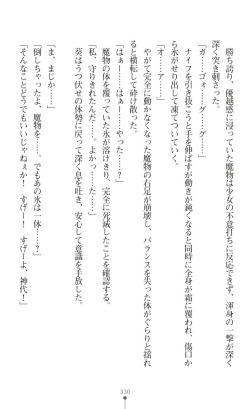 勝ち誇り、優越感に浸っていた魔物は少女の不意打ちに反応できず、渾身の一撃が深く
深く突き刺さった。
「ガ、ゴォ……グ……グ……」
ナイフを引き抜こうと手を伸ばすが動きが鈍くなると同時に全身が霜に覆われ、傷口か
ら氷がせり出して凍てついていく。
「オ……ア……」
やがて完全に動かなくなった魔物の右足が崩壊し、バランスを失った体がぐらりと揺れ
ると横転して砕け散った。
「はぁー……はぁー……やった……?」
魔物の体を覆っていた氷が溶けきり、完全に死滅したことを確認する。
「私、守りきれたんだ……。よかっ……た……」
葵はうつ伏せの体勢に戻って深く息を吐き、安心して意識を手放した。
「ま、まじか……」
「倒しちゃったよ、魔物を……。でもあの氷は一体……?」
「そんなことどうでもいいじゃねぇか! すげー! すげーよ、神代!」
330